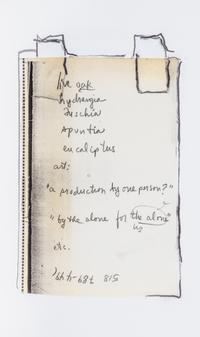 live oak
hydrangia
fuschia
opuntia
eucaliptus
art:
"a production by one person?"
"by the alone for the alone"
us
etc.